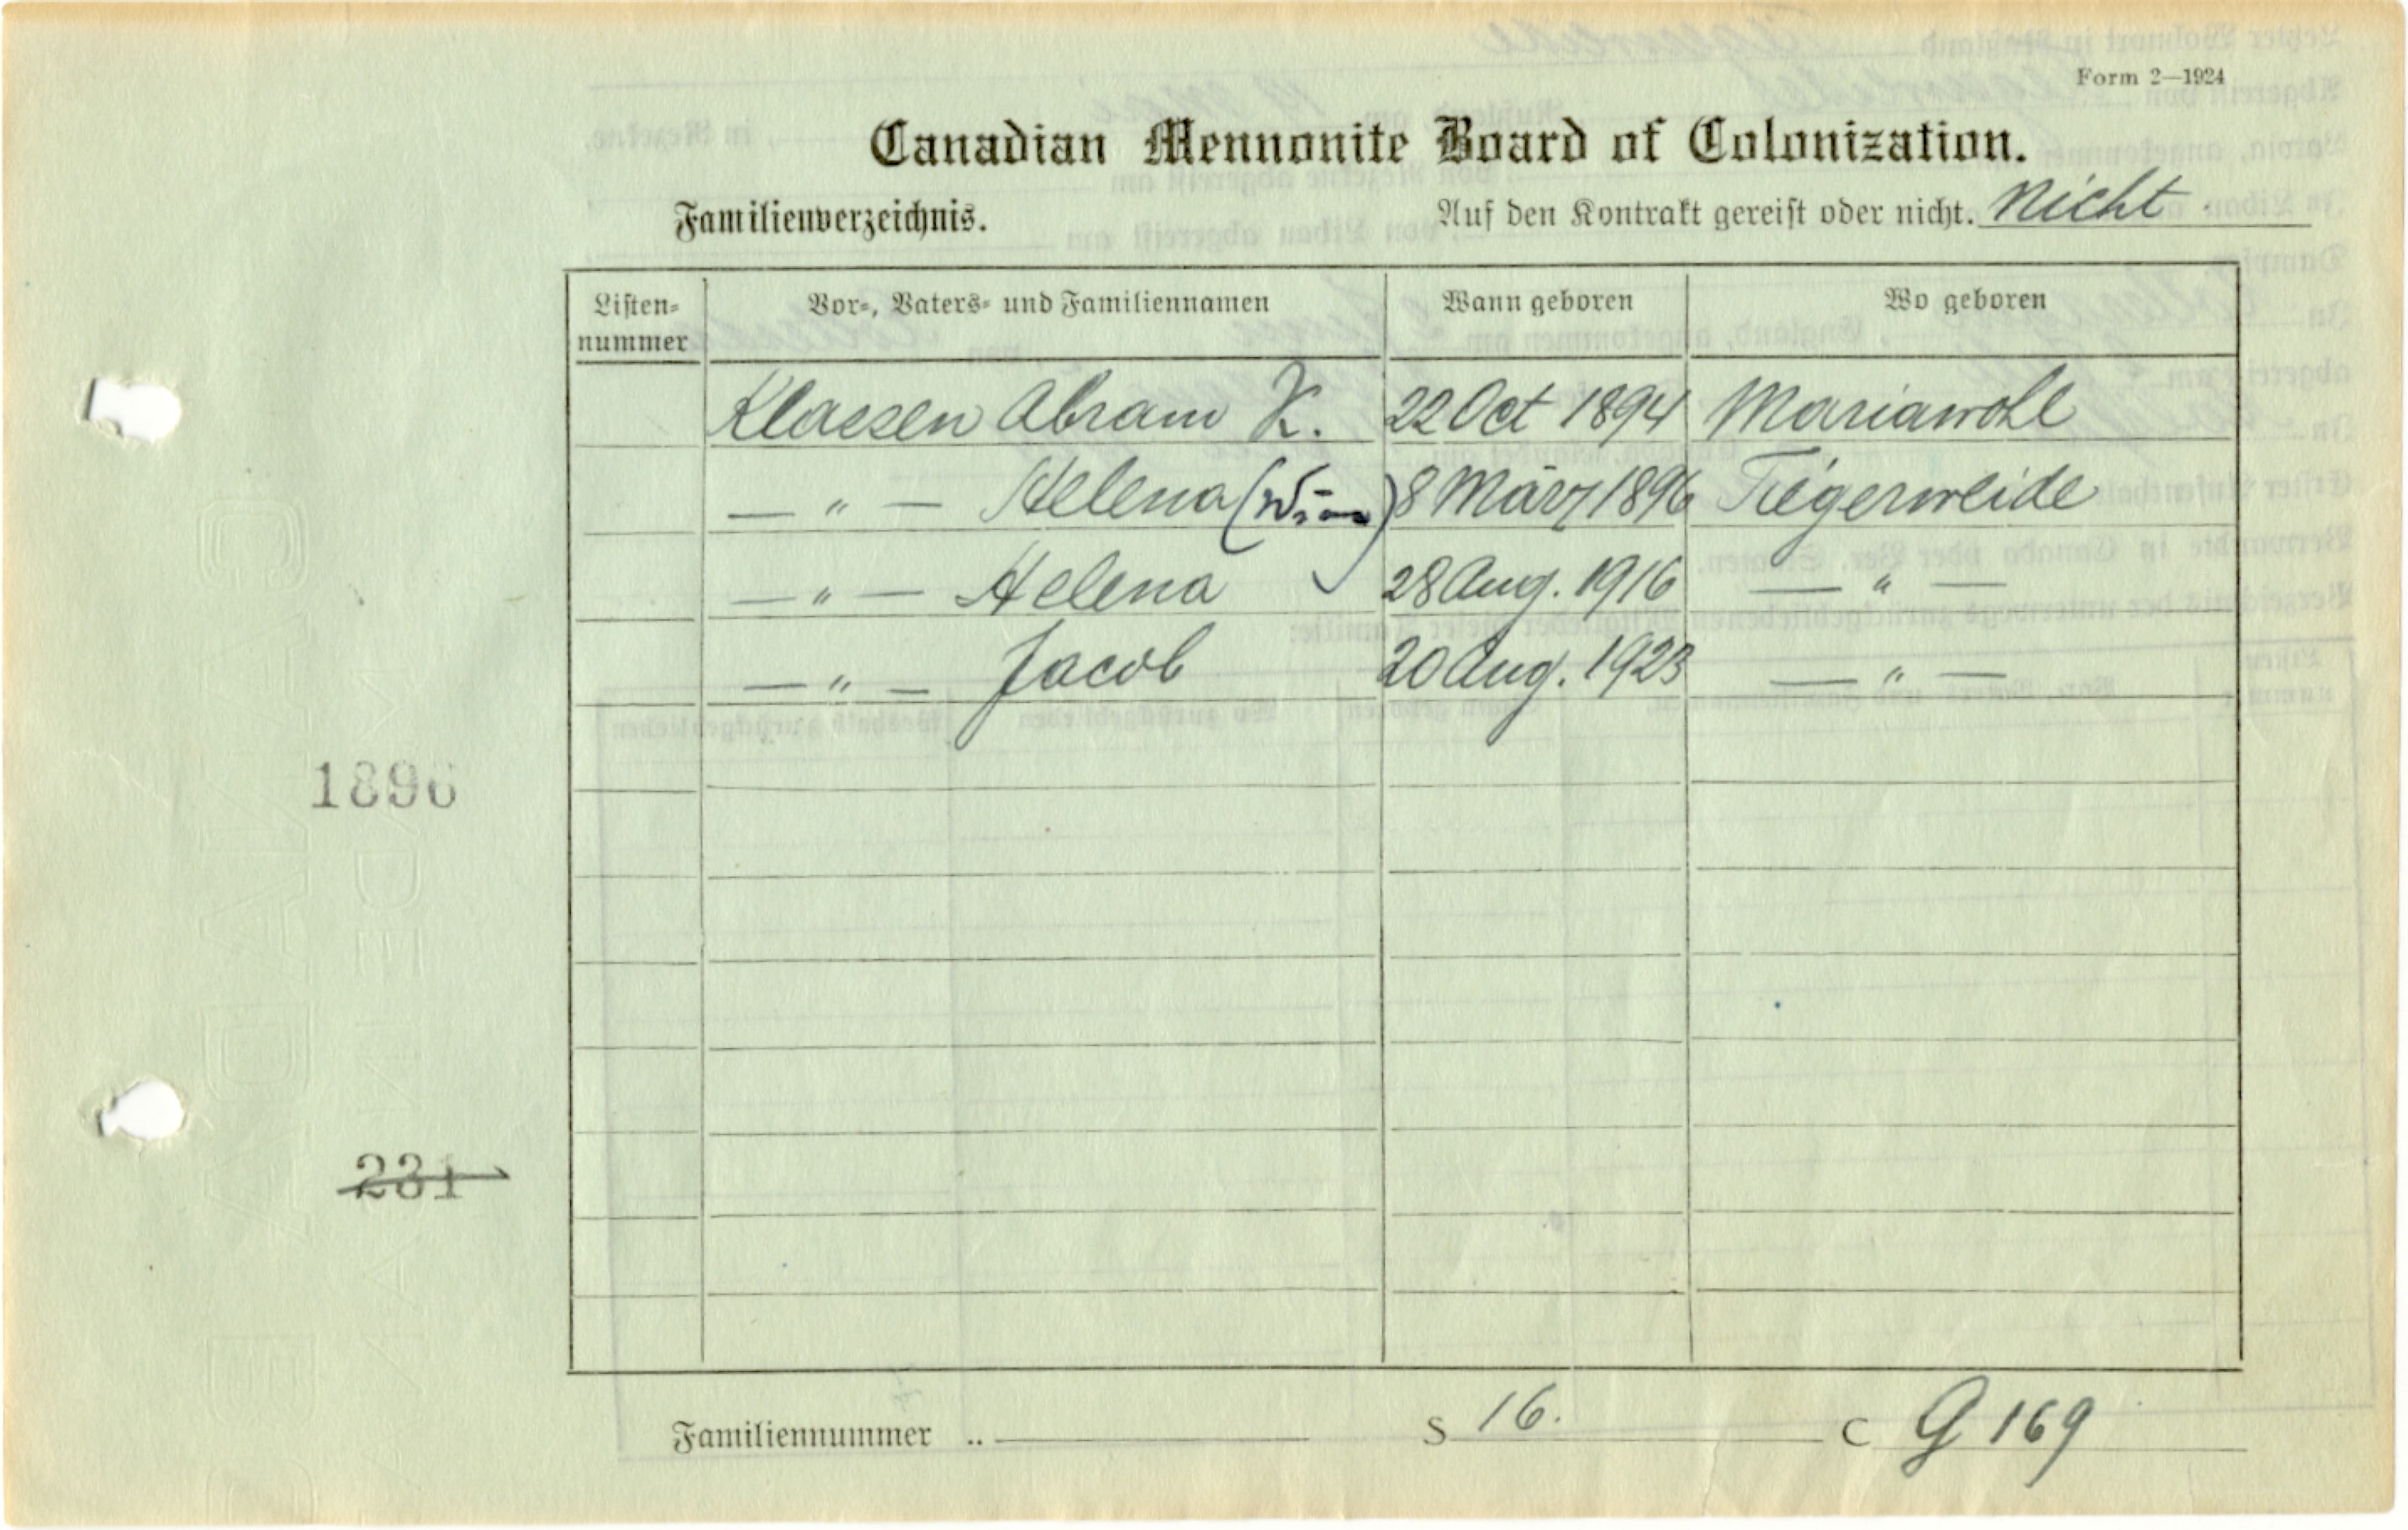 Form 2—1924
Canadian Mennonite Board of Colonization.
Familienverzeichnis. Auf den Kontrakt gereist oder nicht. Nicht
Listen-nummer Vor-, Vaters- und Familiennamen Wann geboren Wo geboren
Klassen Abram K. 22 Oct 1894 Mariawohl
— " — Helena 8 März 1896 Tiegerweide
— " — Helena 28 Aug. 1916 — " —
— " — Jacob 20 Aug. 1923 — " —
1896
231
Familiennummer .. S 16. C G 169